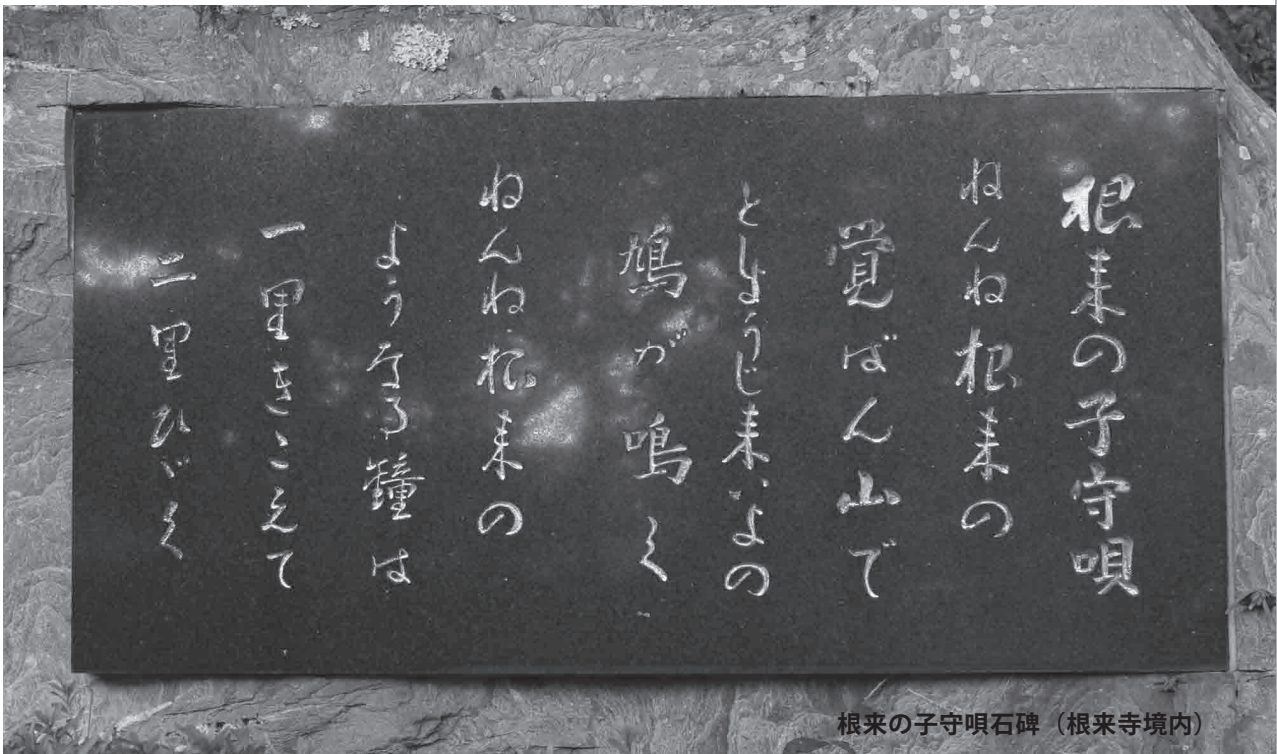 根来の子守唄
ねんね根来の
覚ばん山で
としょうじ来いよの
鳩が鳴く
ねんね根来の
ようなる鐘は
一里きこえて
二里ひびく
根来の子守唄石碑（根来寺境内）